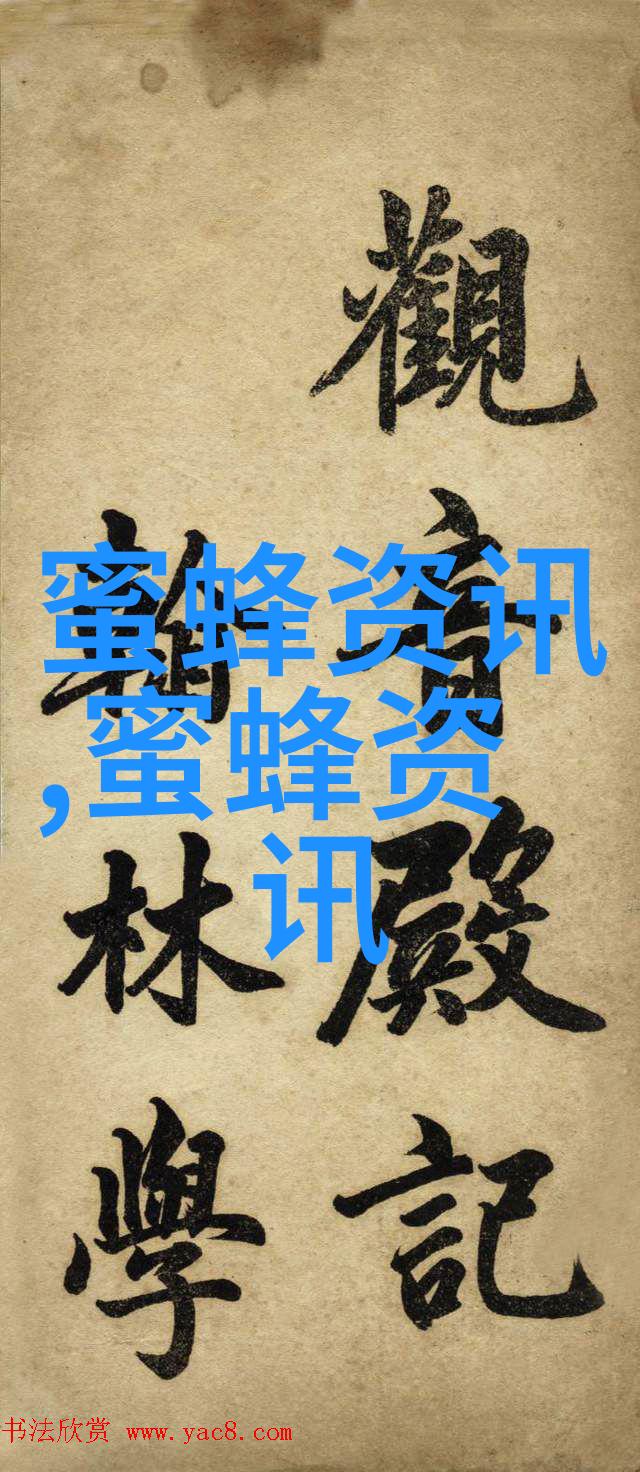 觀音殿記
翰林學
蜜蜂资讯
,蜜蜂资
讯
书法欣赏 www.yac8.com